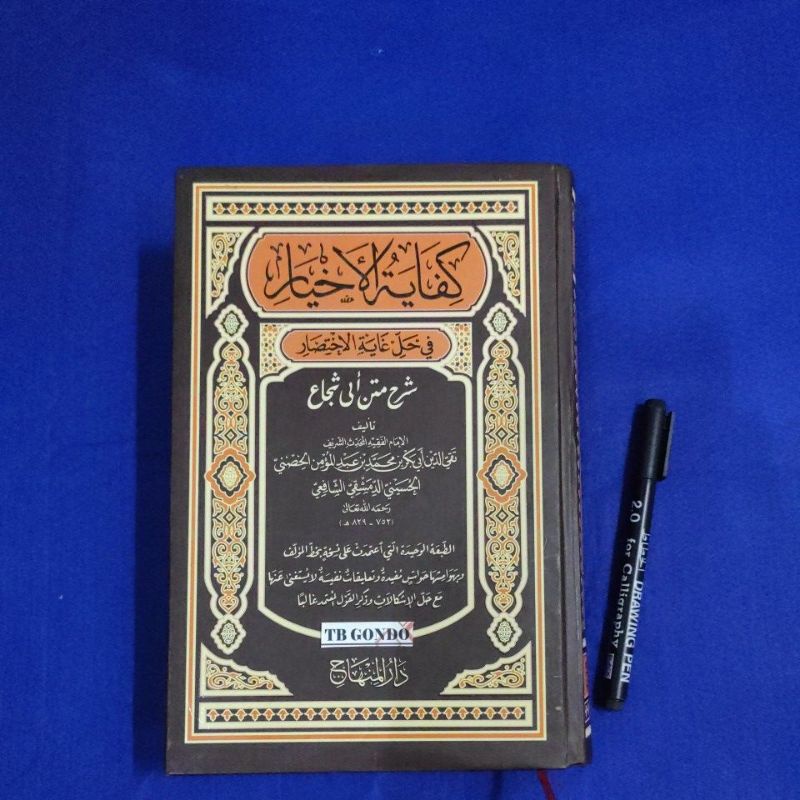 كِفَايَةُ الأَخْيَارِ
فِي حَلِّ غَايَةِ الاِخْتِصَارِ
شرح متن أبي شجاع
تأليف
الإمام الفقيه المحدث الشريف
تقي الدين أبي بكر بن محمد بن عبد المؤمن الحصني
الحسيني الدمشقي الشافعي
رحمه الله تعالى
(٧٥٢ - ٨٢٩ هـ)
الطبعة الوحيدة التي اعتمدت على نسخة بخط المؤلف
وبهوامشها حواشٍ مفيدة وتعليقات نفيسة لا يستغنى عنها
مع حل الإشكالات وذكر القول المعتمد غالبًا
TB GONDO
دار المنهاج
DRAWING PEN
2.0 for Calligraphy